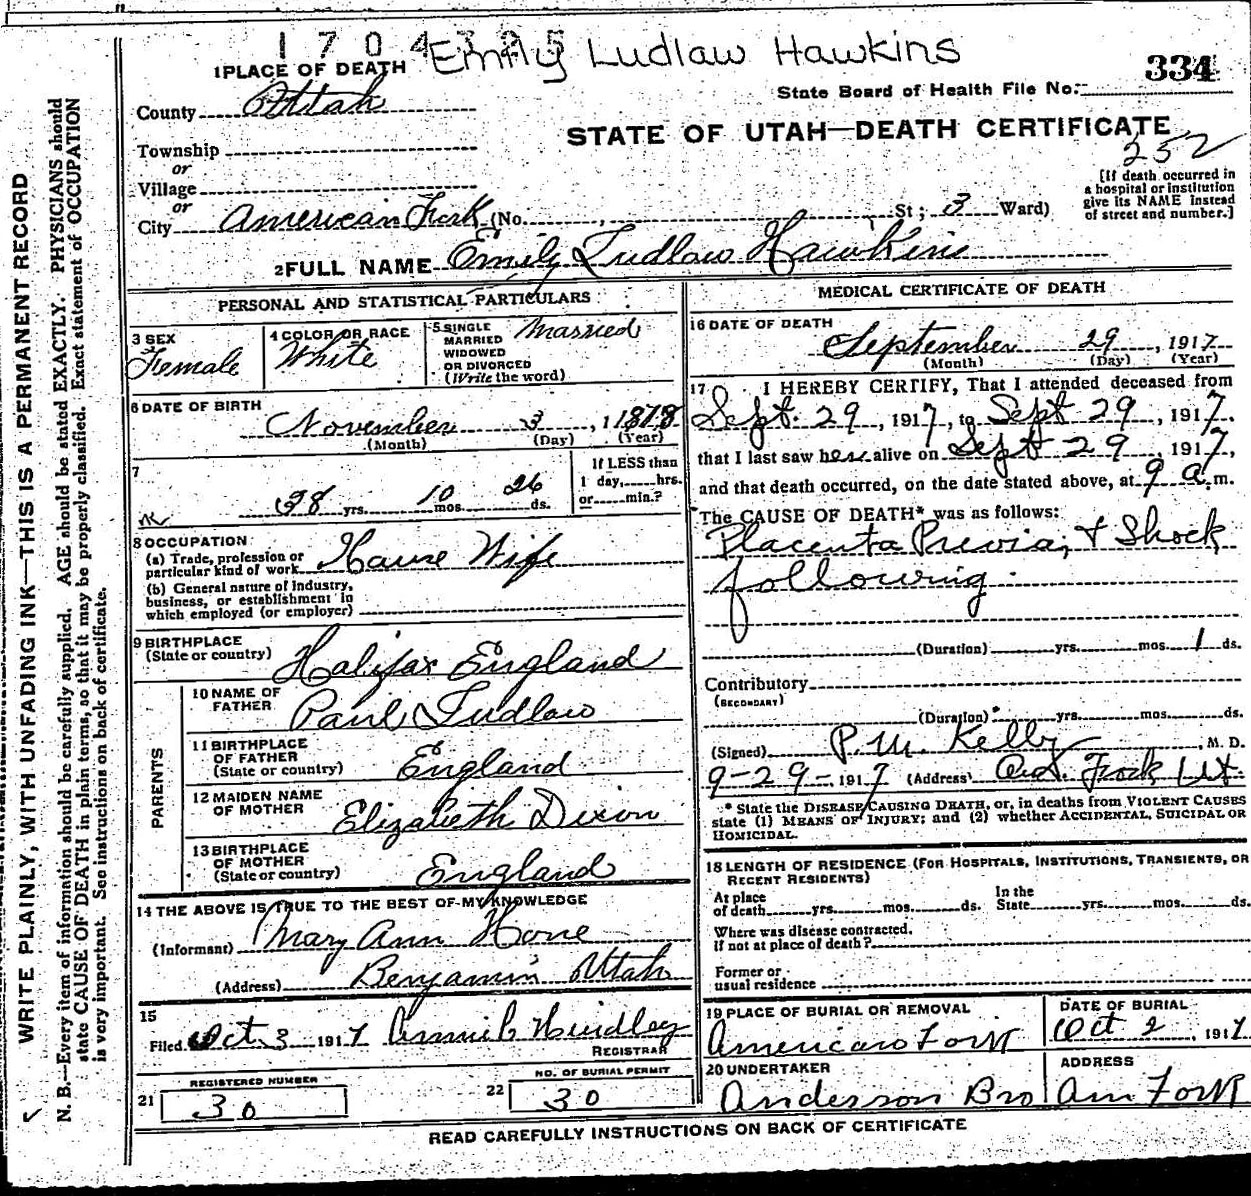 1704325
Emily Ludlaw Hawkins
334
State Board of Health File No.
STATE OF UTAH—DEATH CERTIFICATE
252
1 PLACE OF DEATH
County Utah
Township
or
Village
or
City American Fork (No. , St; 3 Ward)
[If death occurred in
a hospital or institution
give its NAME instead
of street and number.]
2 FULL NAME Emily Ludlow Hawkins
PERSONAL AND STATISTICAL PARTICULARS
3 SEX
Female
4 COLOR OR RACE
White
5 SINGLE
MARRIED
WIDOWED
OR DIVORCED
(Write the word)
Married
6 DATE OF BIRTH
November 3, 1878
(Month) (Day) (Year)
7
38 yrs. 10 mos. 26 ds.
If LESS than
1 day, hrs.
or min.?
8 OCCUPATION
(a) Trade, profession or
particular kind of work House Wife
(b) General nature of Industry,
business, or establishment in
which employed (or employer)
9 BIRTHPLACE
(State or country) Halifax England
PARENTS
10 NAME OF
FATHER Paul Ludlow
11 BIRTHPLACE
OF FATHER
(State or country) England
12 MAIDEN NAME
OF MOTHER Elizabeth Dixon
13 BIRTHPLACE
OF MOTHER
(State or country) England
14 THE ABOVE IS TRUE TO THE BEST OF MY KNOWLEDGE
(Informant) Mary Ann Hone
(Address) Benjamin Utah
15
Filed Oct 3 1917 Hindley
REGISTRAR
21
REGISTERED NUMBER
30
22
NO. OF BURIAL PERMIT
30
MEDICAL CERTIFICATE OF DEATH
16 DATE OF DEATH
September 29, 1917
(Month) (Day) (Year)
17 I HEREBY CERTIFY, That I attended deceased from
Sept. 29, 1917, to Sept 29, 1917,
that I last saw her alive on Sept 29, 1917,
and that death occurred, on the date stated above, at 9 a.m.
The CAUSE OF DEATH* was as follows:
Placenta Previa, & Shock
following
(Duration) yrs. mos. 1 ds.
Contributory
(SECONDARY)
(Duration) yrs. mos. ds.
(Signed) P. M. Kelly, M. D.
9-29-1917 (Address) Am. Frock Ut.
* State the DISEASE CAUSING DEATH, or, in deaths from VIOLENT CAUSES
state (1) MEANS OF INJURY; and (2) whether ACCIDENTAL, SUICIDAL OR
HOMICIDAL.
18 LENGTH OF RESIDENCE (FOR HOSPITALS, INSTITUTIONS, TRANSIENTS, OR
RECENT RESIDENTS)
At place
of death yrs. mos. ds.
In the
State yrs. mos. ds.
Where was disease contracted.
If not at place of death?
Former or
usual residence
19 PLACE OF BURIAL OR REMOVAL
American Fork
DATE OF BURIAL
Oct 2, 1917
20 UNDERTAKER
Anderson Bro
ADDRESS
Am Fork
READ CAREFULLY INSTRUCTIONS ON BACK OF CERTIFICATE
WRITE PLAINLY, WITH UNFADING INK—THIS IS A PERMANENT RECORD
N. B.—Every item of information should be carefully supplied. AGE should be stated EXACTLY. PHYSICIANS should
state CAUSE OF DEATH in plain terms, so that it may be properly classified. Exact statement of OCCUPATION
is very important. See instructions on back of certificate.